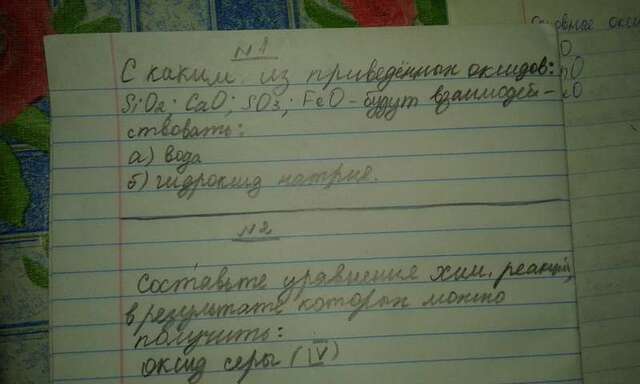 N1
С каким из приведённых оксидов:
SiO2; CaO; SO3; FeO - будут взаимодей-
ствовать:
а) вода
б) гидроксид натрия.
N2
Составьте уравнения хим. реакций,
в результате которых можно
получить:
оксид серы (IV)
Основные